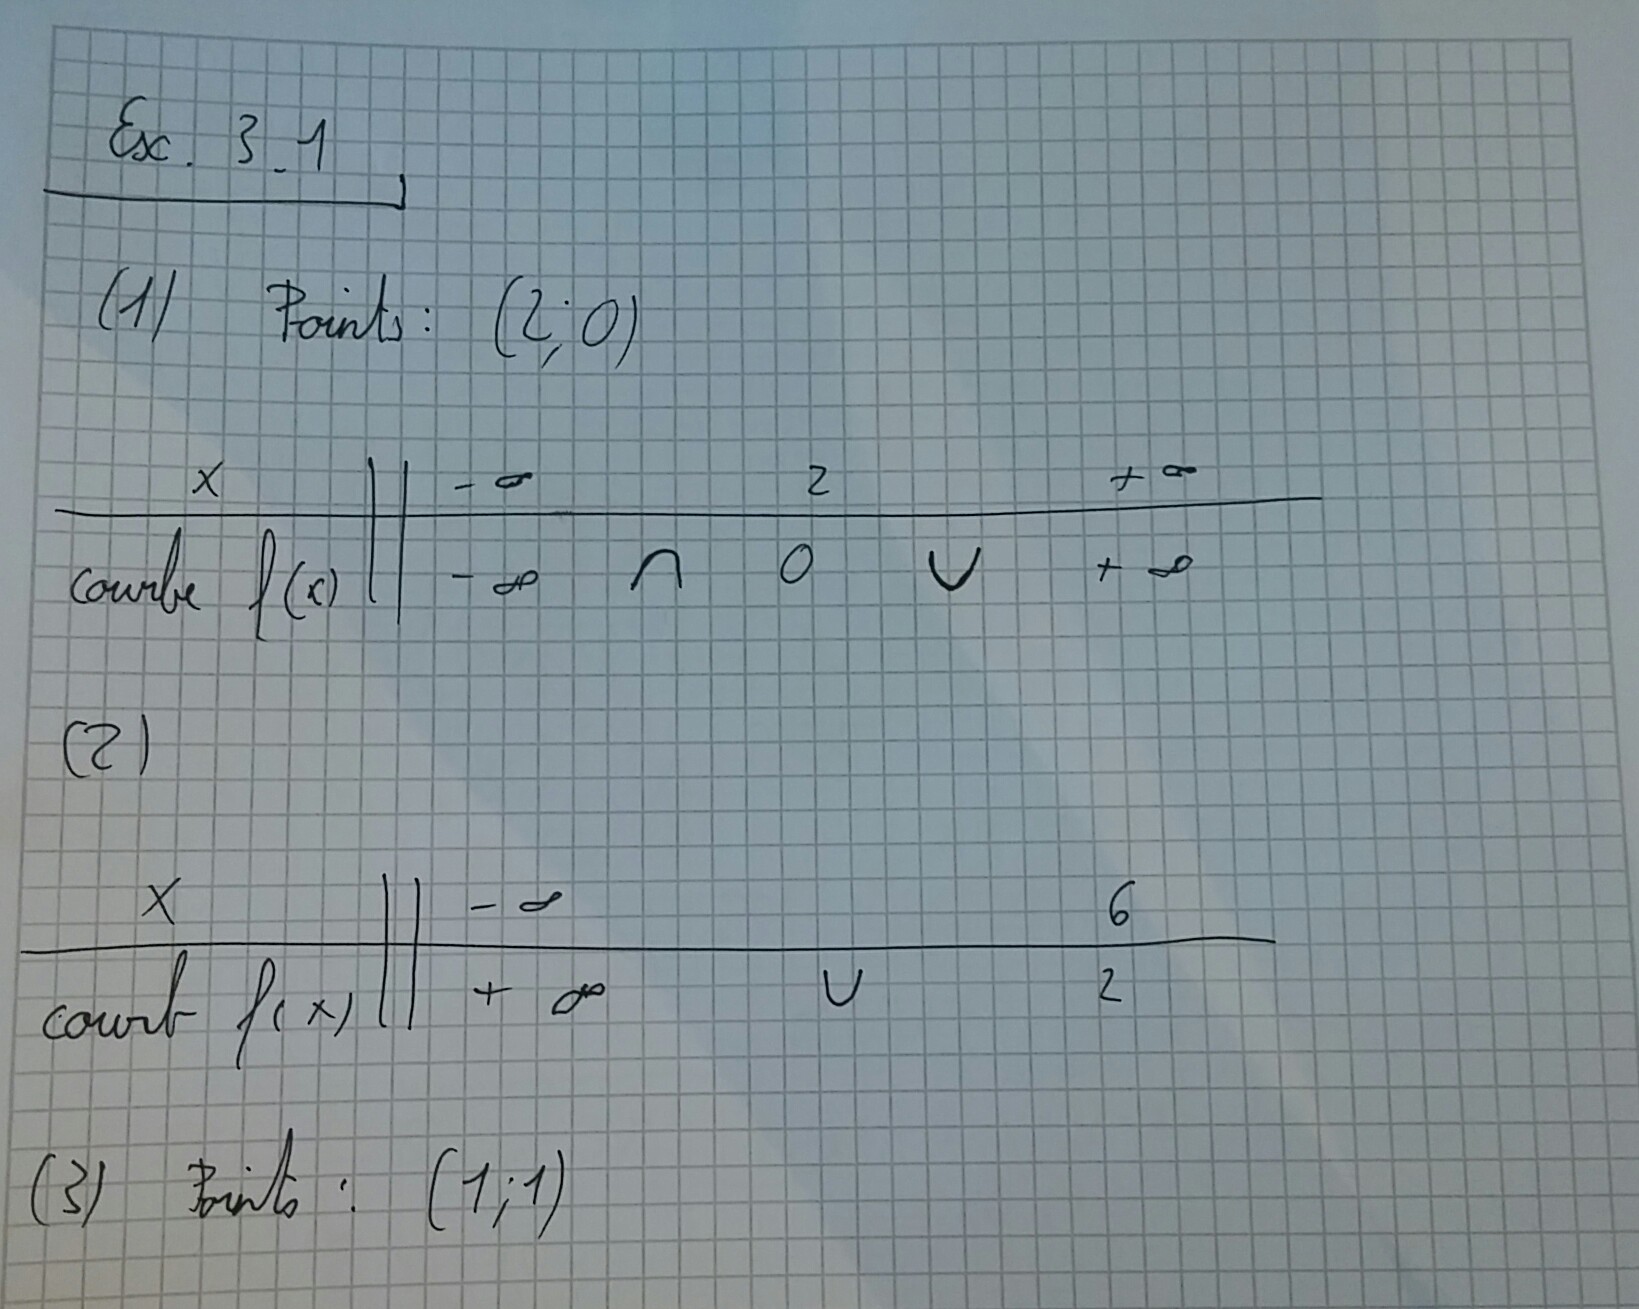 Exc. 3_1
(1) Points: (2;0)
x - ∞ 2 + ∞
courbe f(x) - ∞ ∩ 0 ∪ + ∞
(2)
x - ∞ 6
courb f(x) + ∞ ∪ 2
(3) Points : (1;1)